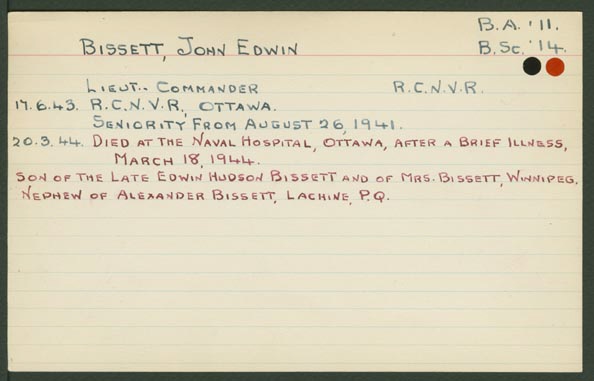 B.A. '11.
BISSETT, JOHN EDWIN
B.Sc. '14.
LIEUT.- COMMANDER R.C.N.V.R.
17.6.43. R.C.N.V.R, OTTAWA.
SENIORITY FROM AUGUST 26, 1941.
20.3.44. DIED AT THE NAVAL HOSPITAL, OTTAWA, AFTER A BRIEF ILLNESS,
MARCH 18, 1944.
SON OF THE LATE EDWIN HUDSON BISSETT AND OF MRS. BISSETT, WINNIPEG.
NEPHEW OF ALEXANDER BISSETT, LACHINE, P.Q.